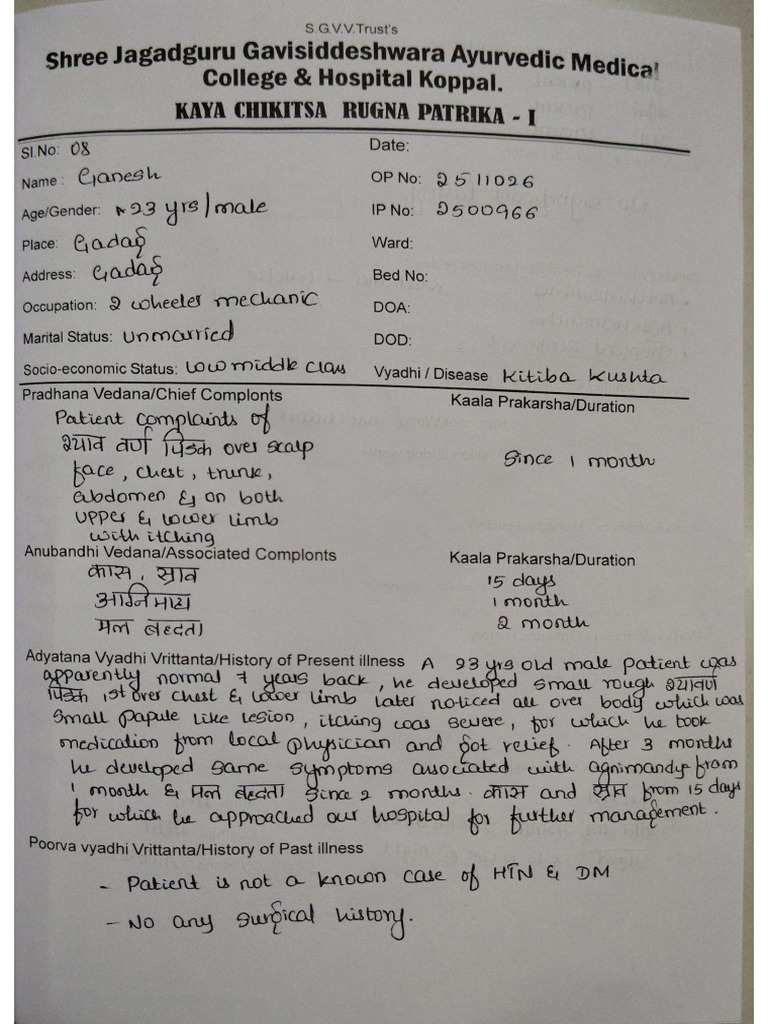 S.G.V.V.Trust's
Shree Jagadguru Gavisiddeshwara Ayurvedic Medical
College & Hospital Koppal.
KAYA CHIKITSA RUGNA PATRIKA - I
Sl.No: 08 Date:
Name : Ganesh OP No: 2511026
Age/Gender: 23 yrs/male IP No: 2500966
Place: Gadag Ward:
Address: Gadag Bed No:
Occupation: 2 wheeler mechanic DOA:
Marital Status: unmarried DOD:
Socio-economic Status: low middle class Vyadhi / Disease Kitiba Kushta
Pradhana Vedana/Chief Complonts Kaala Prakarsha/Duration
Patient complaints of
श्याव वर्ण पिडक over scalp
face, chest, trunk, Since 1 month
abdomen & on both
upper & lower limb
with itching
Anubandhi Vedana/Associated Complonts Kaala Prakarsha/Duration
कास, स्राव 15 days
अग्निमांद्य 1 month
मल बद्दता 2 month
Adyatana Vyadhi Vrittanta/History of Present illness A 23 yrs old male patient was
apparently normal 7 years back, he developed small rough श्यावर्ण
पिडक 1st over chest & lower limb later noticed all over body which was
small papule like lesion, itching was severe, for which he took
medication from local physician and got relief. After 3 months
he developed same symptoms associated with agnimandya from
1 month & मल बद्दता since 2 months. कास and स्राव from 15 days
for which he approached our hospital for further management.
Poorva vyadhi Vrittanta/History of Past illness
- Patient is not a known case of HTN & DM
- No any surgical history.